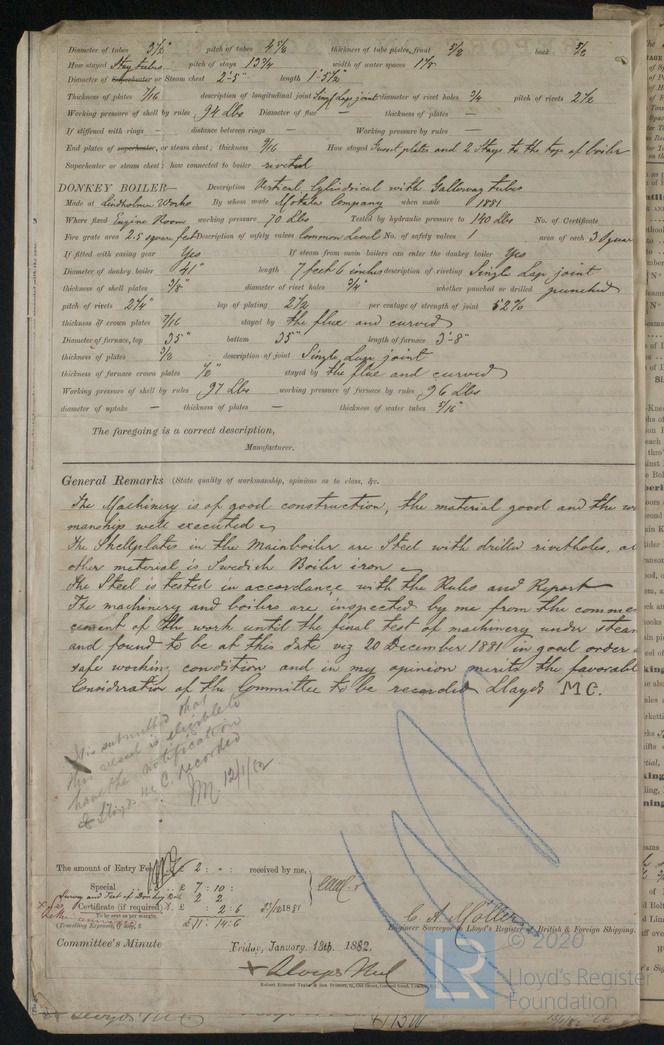 Diameter of tubes 3½" pitch of tubes 4⅝ thickness of tube plates, front ⅝ back ⅝
How stayed Stay tubes pitch of stays 13¾ width of water spaces 1⅛
Diameter of Superheater or Steam chest 2'-5" length 1'-5½"
Thickness of plates 7/16 description of longitudinal joint Singl Lap joint diameter of rivet holes ¾ pitch of rivets 2½
Working pressure of shell by rules 94 Lbs Diameter of flue — thickness of plates —
If stiffened with rings — distance between rings — Working pressure by rules —
End plates of superheater, or steam chest; thickness 9/16 How stayed Gusset plates and 2 Stays to the top of boiler
Superheater or steam chest; how connected to boiler riveted
DONKEY BOILER— Description Vertical, Cylindrical with Galloway tubes
Made at Lindholmen Works By whom made Motala Company when made 1881
Where fixed Engine Room working pressure 70 Lbs Tested by hydraulic pressure to 140 Lbs No. of Certificate
Fire grate area 2.5 square feet Description of safety valves Common Level No. of safety valves 1 area of each 3 Squar
If fitted with easing gear Yes If steam from main boilers can enter the donkey boiler Yes
Diameter of donkey boiler 41" length 7 feet 6 inches description of riveting Single Lap joint
thickness of shell plates ⅜" diameter of rivet holes ¾" whether punched or drilled punched
pitch of rivets 2¼" lap of plating 2½ per centage of strength of joint 52%
thickness of crown plates 7/16 stayed by the flue and curved
Diameter of furnace, top 35" bottom 35" length of furnace 3'-8"
thickness of plates ⅜ description of joint Single Lap joint
thickness of furnace crown plates ½" stayed by the flue and curved
Working pressure of shell by rules 97 Lbs working pressure of furnace by rules 96 Lbs
diameter of uptake — thickness of plates — thickness of water tubes 5/16"
The foregoing is a correct description,
Manufacturer.
General Remarks (State quality of workmanship, opinions as to class, &c.
The Machinery is of good construction, the material good and the wo
manship well executed
The Shellplates in the Mainboiler are Steel with drilled rivetholes, al
other material is Swedish Boiler iron
The Steel is tested in accordance with the Rules and Report
The machinery and boilers are inspected by me from the comme
cement of the work until the final test of machinery under steam
and found to be at this date viz 20 December 1881 in good order a
safe working condition and in my opinion merits the favorabl
Consideration of the Committee to be recorded Lloyds MC.
It is submitted that
this vessel is eligible to
have the notification
to Lloyds M.C. recorded
M. 12/1/82
The amount of Entry Fee £ 2 : - : received by me,
Special £ 7 : 10 :
Survey and Test of Donkey Boil 2 2
Certificate (if required) £ : 2 : 6 1881
To be sent as per margin.
(Travelling Expenses, £ 11 : 14 : 6
C A Möller
Engineer Surveyor to Lloyd's Register of British & Foreign Shipping.
Committee's Minute Friday, January 13th. 1882.
+ Lloyds M.C.
© 2020
LR Lloyd's Register
Foundation